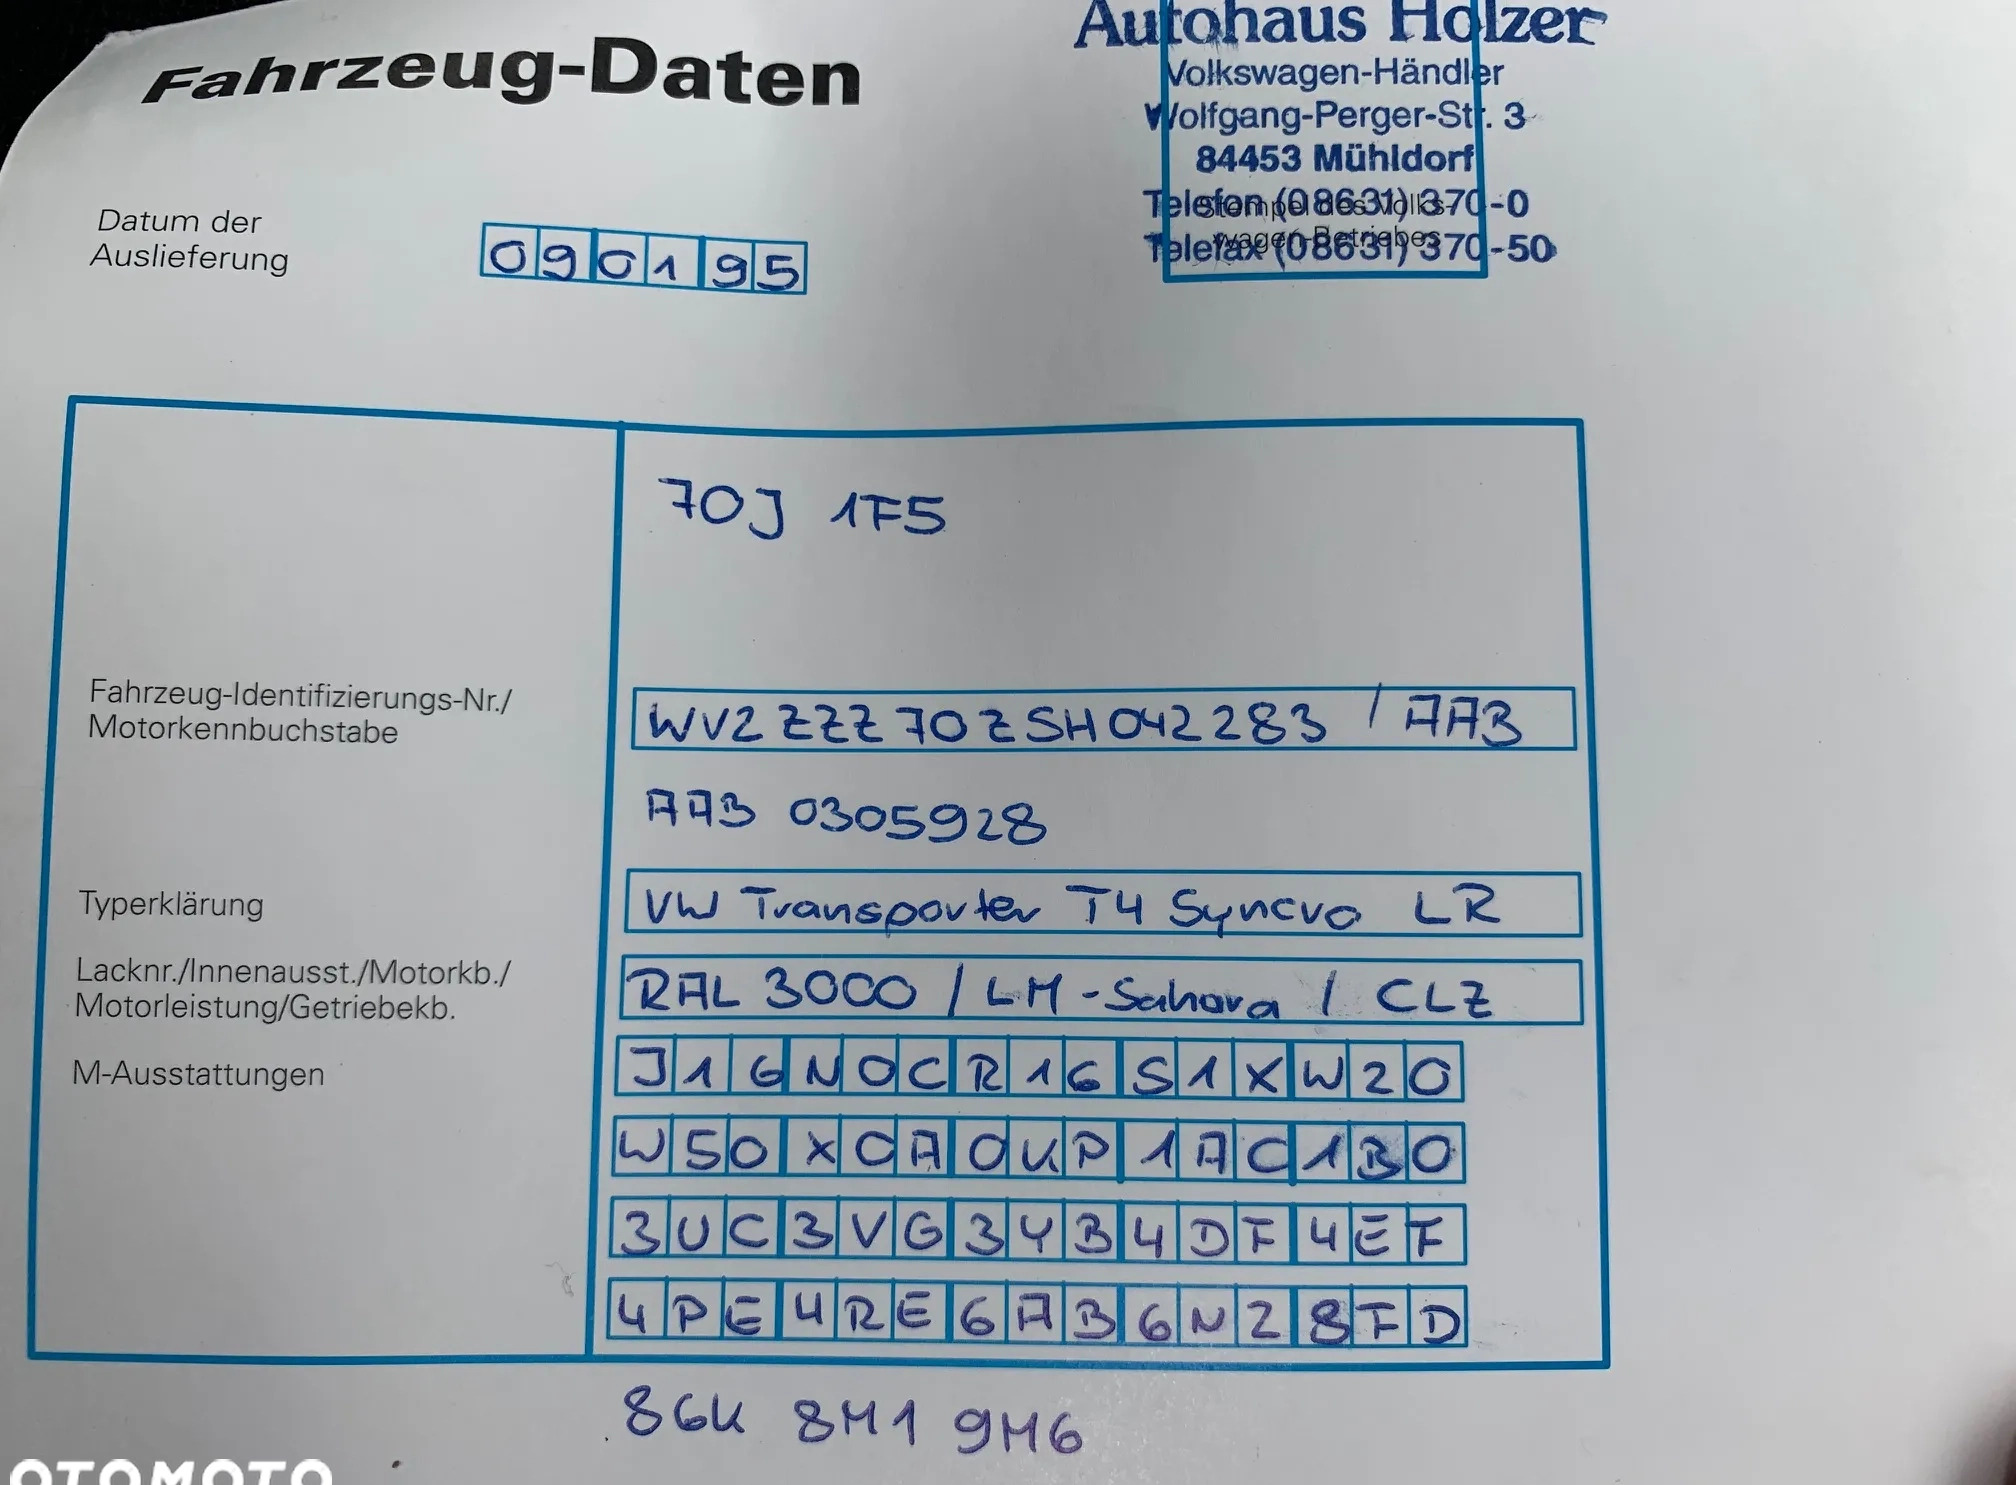 Autohaus Holzer
Volkswagen-Händler
Wolfgang-Perger-Str. 3
84453 Mühldorf
Telefon (08631) 370-0
Stempel des Volks-
Telefax (08631) 370-50
wagen-Betriebes
Fahrzeug-Daten
Datum der
Auslieferung
090195
70J 1F5
Fahrzeug-Identifizierungs-Nr./
Motorkennbuchstabe
WV2ZZZ70ZSH042283 / AAB
AAB 0305928
Typerklärung
VW Transporter T4 Syncro LR
Lacknr./Innenausst./Motorkb./
Motorleistung/Getriebekb.
RAL 3000 / LM-Sahara / CLZ
M-Ausstattungen
J1G N0C R16 S1X W20
W50 X0A 0UP 1AC 1B0
3UC 3VG 3YB 4DF 4EF
4PE 4RE 6AB 6N2 8FD
8GK 8M1 9M6
OTOMOTO